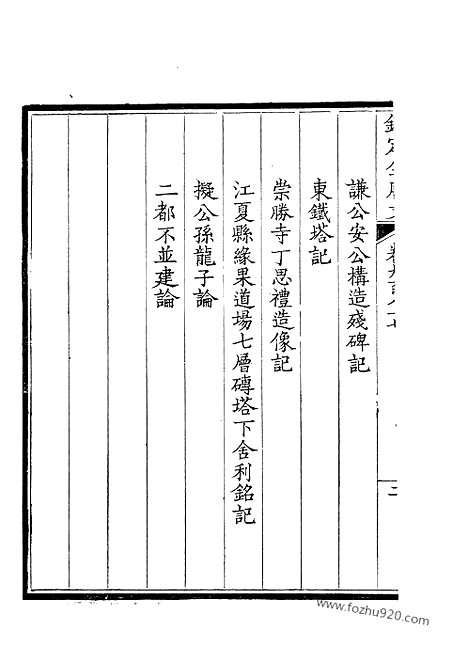 欽定全唐文
卷九百八十七
二
謙公安公構造殘碑記
東鐵塔記
崇勝寺丁思禮造像記
江夏縣緣果道場七層磚塔下舍利銘記
擬公孫龍子論
二都不並建論
www.fozhu920.com